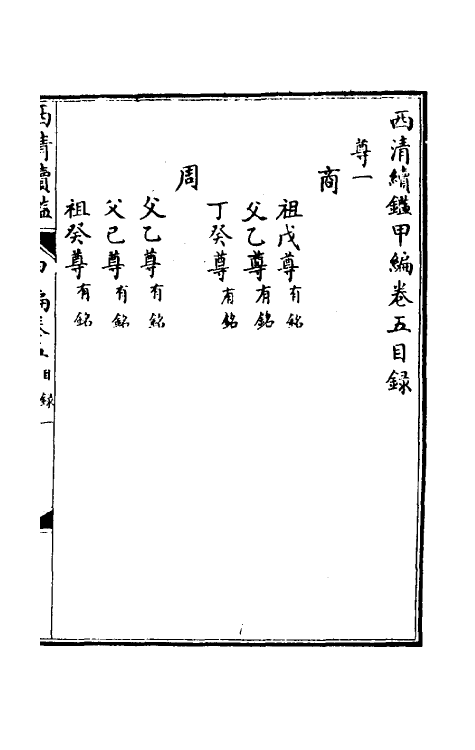 西清續鑑甲編卷五目錄
尊一
商
祖戊尊有銘
父乙尊有銘
丁癸尊有銘
周
父乙尊有銘
父己尊有銘
祖癸尊有銘
西清續鑑 甲編卷五 目錄 一